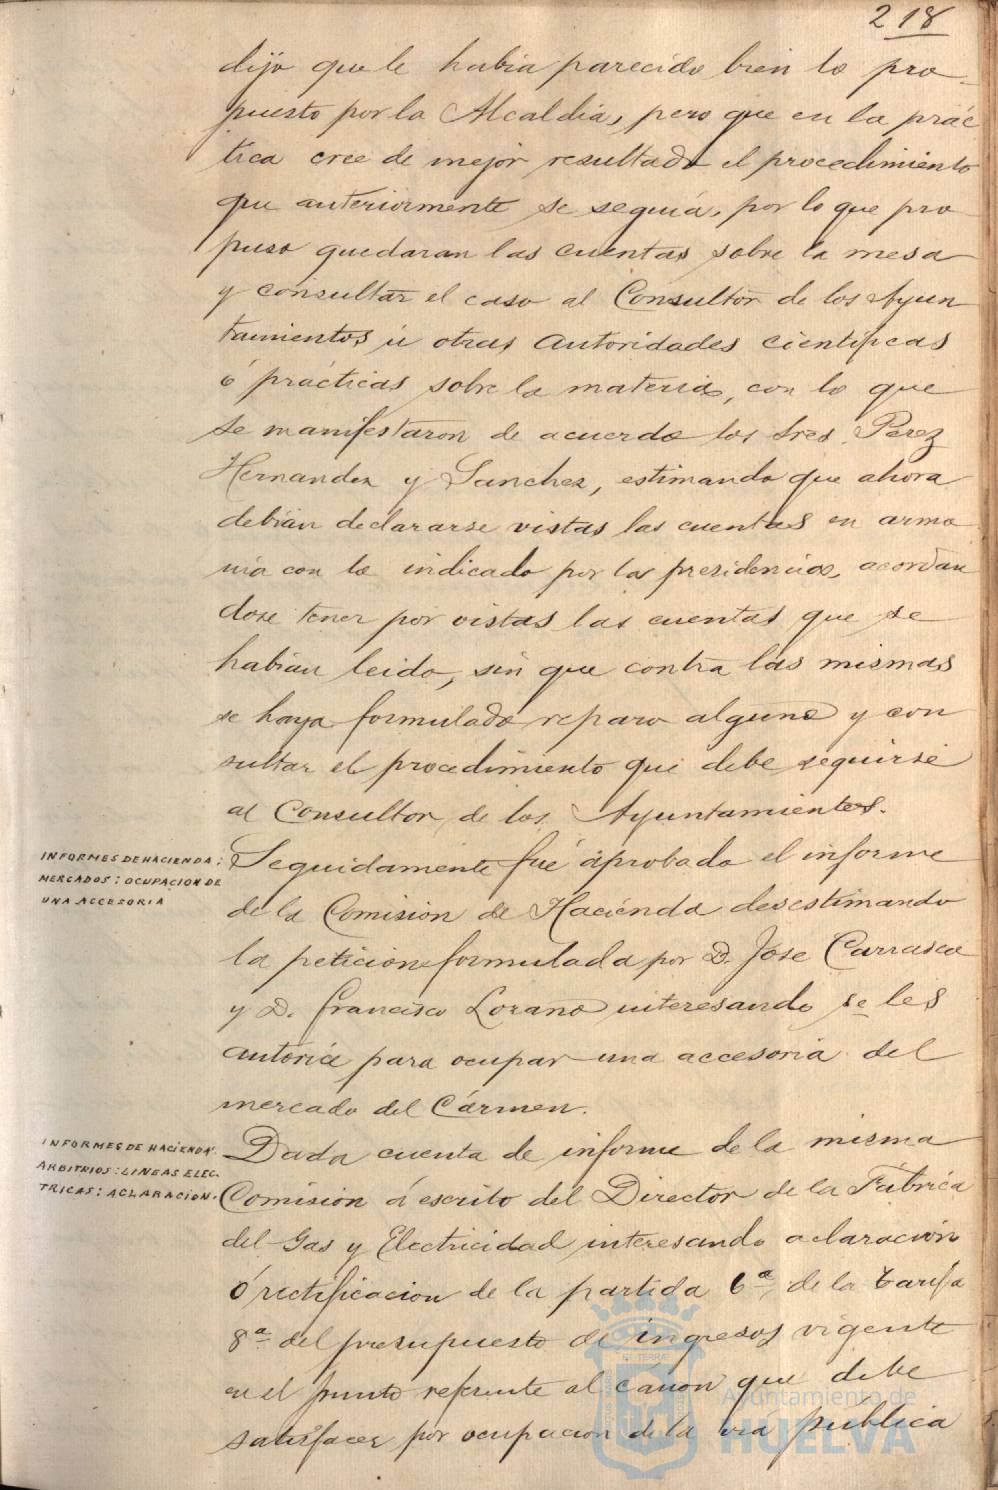 218
dijo que le habia parecido bien lo pro-
puesto por la Alcaldia, pero que en la prác
tica cree de mejor resultado el procedimiento
que anteriormente se seguia, por lo que pro
puso quedaran las cuentas sobre la mesa
y consultar el caso al Consultor de los Ayun
tamientos ú otras autoridades cientificas
ó prácticas sobre la materia, con lo que
se manifestaron de acuerdo los Sres. Perez
Hernandez y Sanchez, estimando que ahora
debian declararse vistas las cuentas en armo
nia con lo indicado por la presidencia, acordan
dose tener por vistas las cuentas que se
habian leido, sin que contra las mismas
se haya formulado reparo alguno y con
sultar el procedimiento que debe seguirse
al Consultor de los Ayuntamientos.
INFORMES DE HACIENDA:
MERCADOS: OCUPACION DE
UNA ACCESORIA
Seguidamente fué aprobado el informe
de la Comision de Hacienda desestimando
la peticion formulada por D. Jose Carrasco
y D. Francisco Lozano interesando se les
autorice para ocupar una accesoria del
mercado del Cármen.
INFORMES DE HACIENDA.
ARBITRIOS: LINEAS ELEC-
TRICAS: ACLARACION.
Dada cuenta de informe de la misma
Comision á escrito del Director de la Fábrica
del Gas y Electricidad interesando aclaración
ó rectificacion de la partida 6ª de la tarifa
8ª del presupuesto de ingresos vigente
en el punto referente al cánon que debe
satisfacer por ocupacion de la via publica
Ayuntamiento de
HUELVA